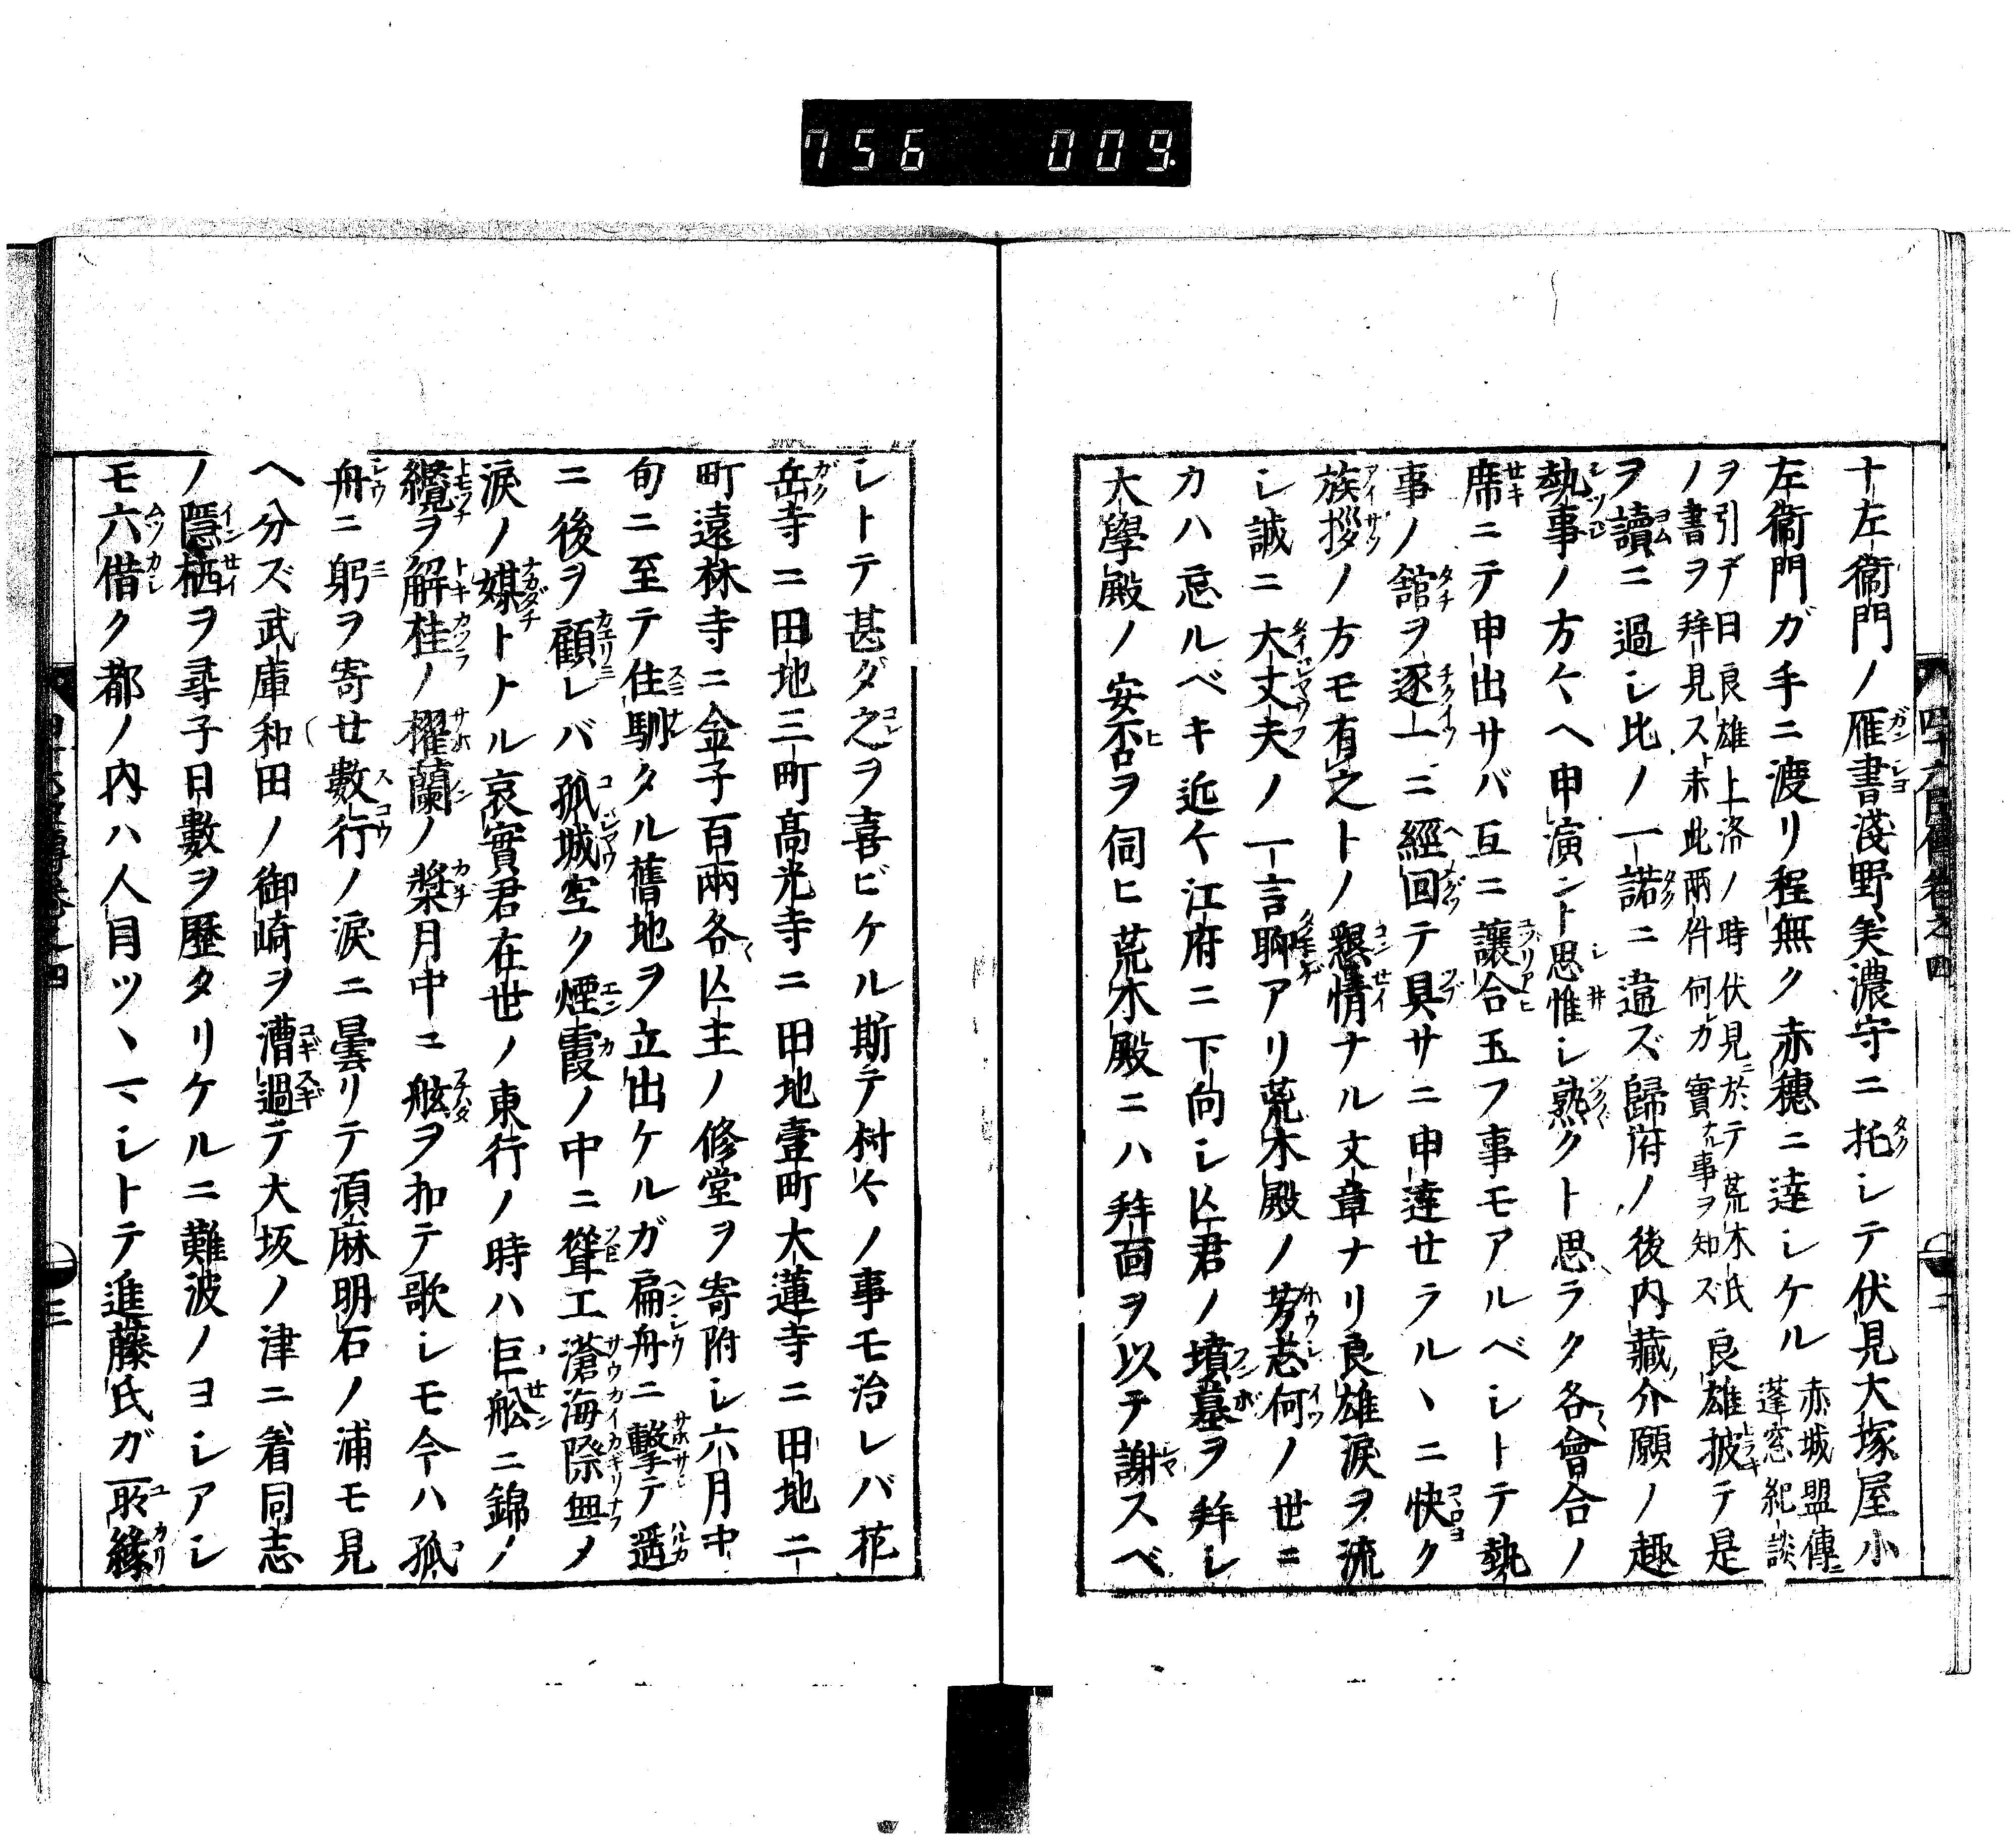 756 009
十左衞門ノ雁書淺野美濃守ニ托シテ伏見大塚屋小
左衞門ガ手ニ渡リ程無ク赤穗ニ達シケル赤城盟傳ニ蓬窓紀談
ヲ引テ曰良雄上洛ノ時伏見ニ於テ荒木氏
ノ書ヲ拜見スト未此兩件何レカ實ナル事ヲ知ズ良雄披テ是
ヲ讀ニ過シ比ノ一諾ニ違ズ歸府ノ後内藏介願ノ趣
執事ノ方々ヘ申演ント思惟シ熟クト思ラク各會合ノ
席ニテ申出サバ互ニ讓合玉フ事モアルベシトテ執
事ノ舘ヲ逐一ニ經回テ具サニ申達セラルヽニ快ク
族拶ノ方モ有之トノ懇情ナル文章ナリ良雄淚ヲ流
シ誠ニ大丈夫ノ一言聊アリ荒木殿ノ芳志何ノ世ニ
カハ忘ルベキ近々江府ニ下向シ𪜈君ノ墳墓ヲ拜シ
大學殿ノ安否ヲ伺ヒ荒木殿ニハ拜面ヲ以テ謝スベ
シトテ甚ダ之ヲ喜ビケル斯テ村々ノ事モ治レバ花
岳寺ニ田地三町高光寺ニ田地壹町大蓮寺ニ田地二
町遠林寺ニ金子百兩各𪜈主ノ修堂ヲ寄附シ六月中
旬ニ至テ住馴タル舊地ヲ立出ケルガ扁舟ニ撆テ遥
ニ後ヲ顧レバ孤城空ク煙霞ノ中ニ聳エ滄海際無メ
淚ノ媒トトル哀實君在世ノ東行ノ時ハ巨舩ニ錦ノ
纜ヲ解桂ノ櫂蘭ノ槳月中ニ舷ヲ扣テ歌シモ今ハ孤
舟ニ躬ヲ寄せ數行ノ淚ニ曇リテ須麻明石ノ浦モ見
ヘ分ズ武庫和田ノ御崎ヲ漕過テ大坂ノ津ニ着同志
ノ隱栖ヲ尋子日數ヲ歷タリケルニ難波ノヨシアシ
モ六借ク都ノ内ハ人目ツヽマシトテ進藤氏ガ所緣